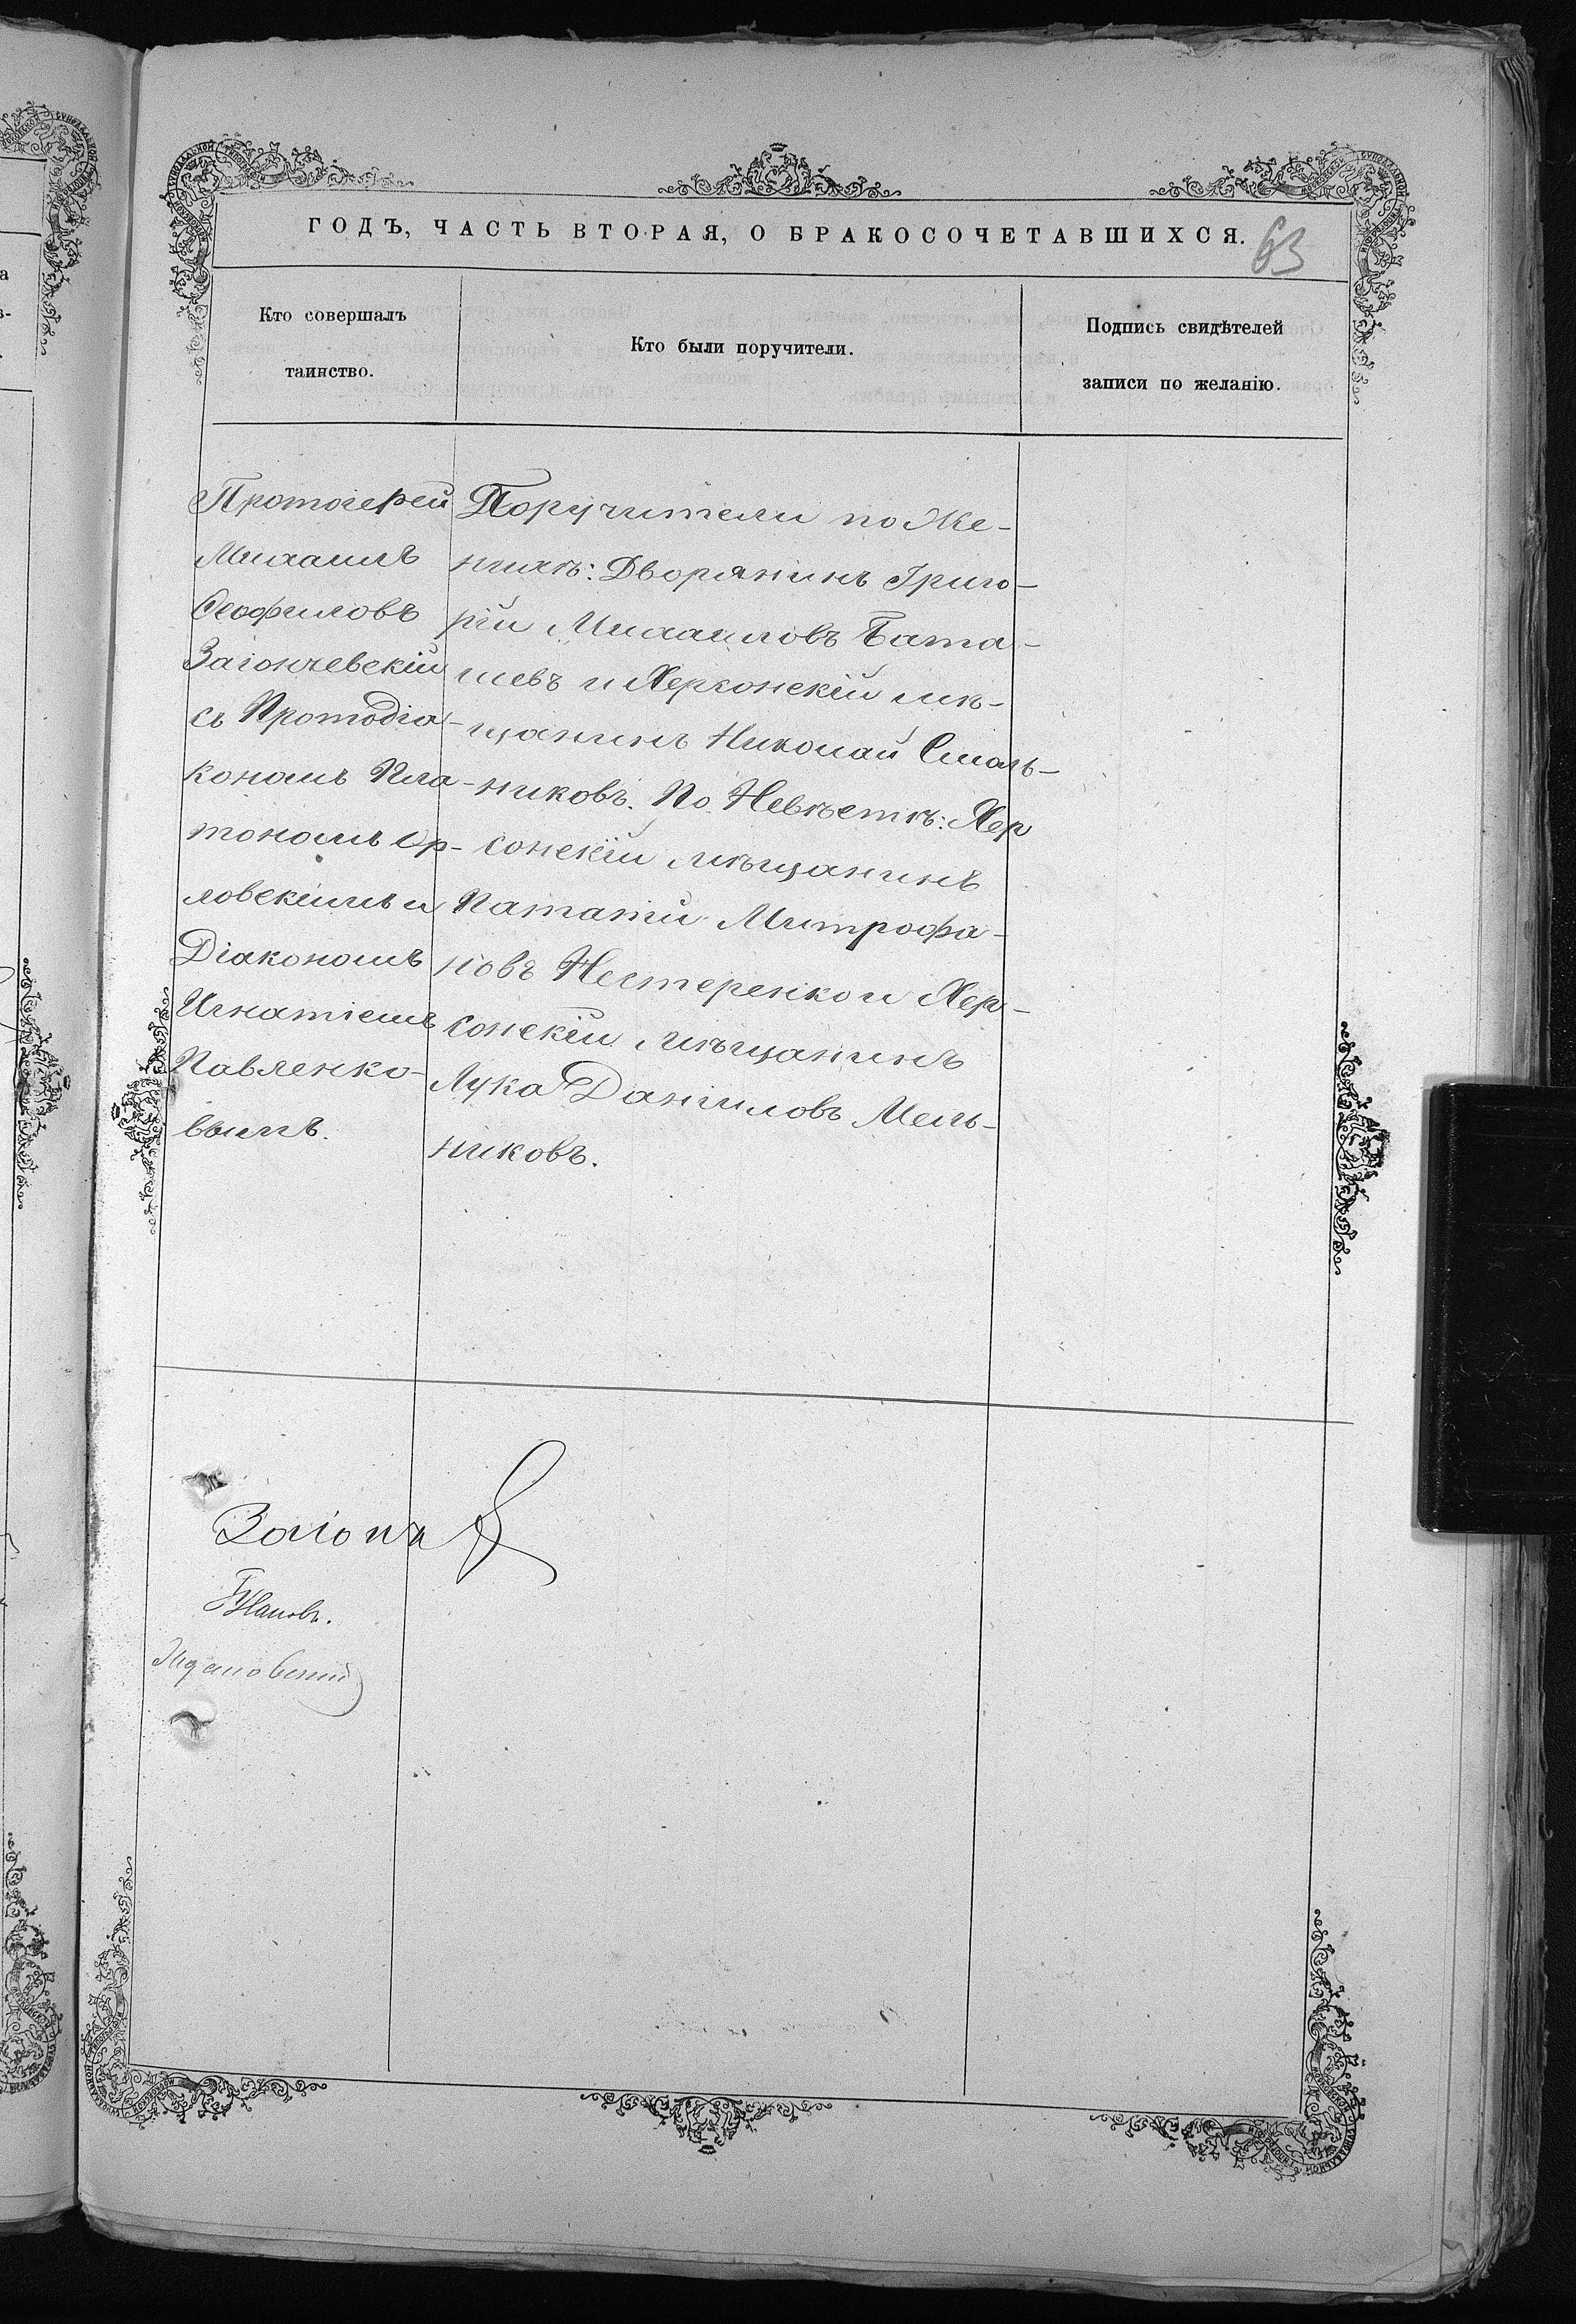 ГОДЪ, ЧАСТЬ ВТОРАЯ, О БРАКОСОЧЕТАВШИХСЯ.
63
Кто совершалъ
таинство.
Кто были поручители.
Подпись свидѣтелей
записи по желанію.
Протоіерей
Михаилъ
Ѳеофиловъ
Загоичевскій
съ Протодіа-
кономъ Пла-
тономъ Ор-
ловскимъ и
Діакономъ
Игнатіемъ
Павленко-
вымъ.
Поручители по Же-
нихѣ: Дворянинъ Григо-
рій Михаиловъ Бата-
шевъ и Херсонскій мѣ-
щанинъ Николай Смаль-
никовъ. По Невѣстѣ: Хер
сонскій мѣщанинъ
Ипатій Митрофа-
новъ Нестеренко и Хер-
сонскій мѣщанинъ
Лука Даниловъ Мель-
никовъ.